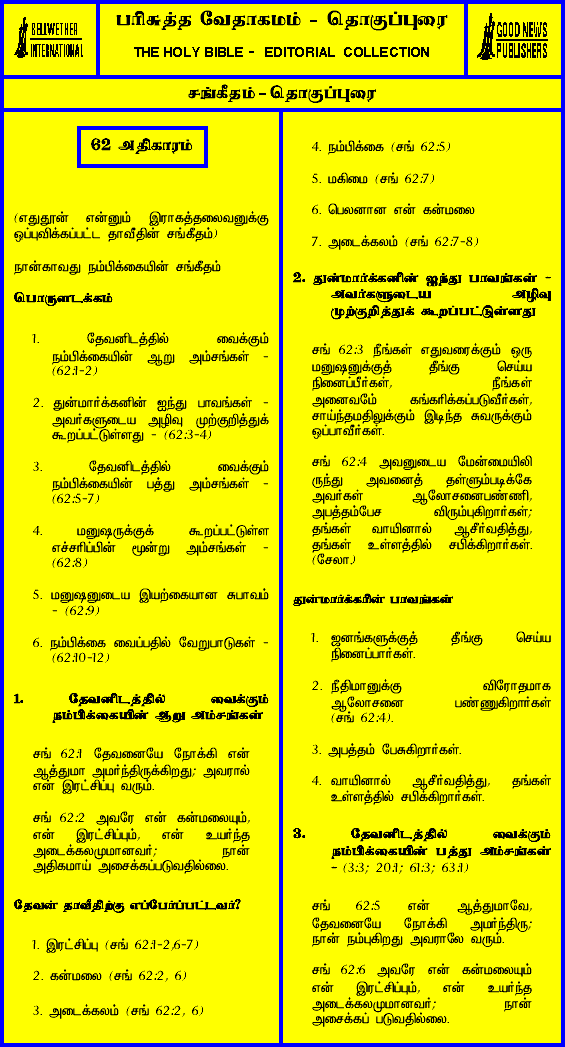 BELLWETHER
INTERNATIONAL
பரிசுத்த வேதாகமம் - தொகுப்புரை
THE HOLY BIBLE - EDITORIAL COLLECTION
GOOD NEWS
PUBLISHERS
சங்கீதம் - தொகுப்புரை
62 அதிகாரம்
(எதுதூன் என்னும் இராகத்தலைவனுக்கு
ஒப்புவிக்கப்பட்ட தாவீதின் சங்கீதம்)
நான்காவது நம்பிக்கையின் சங்கீதம்
பொருளடக்கம்
1. தேவனிடத்தில் வைக்கும்
நம்பிக்கையின் ஆறு அம்சங்கள் -
(62:1-2)
2. துன்மார்க்கனின் ஐந்து பாவங்கள் -
அவர்களுடைய அழிவு முற்குறித்துக்
கூறப்பட்டுள்ளது - (62:3-4)
3. தேவனிடத்தில் வைக்கும்
நம்பிக்கையின் பத்து அம்சங்கள் -
(62:5-7)
4. மனுஷருக்குக் கூறப்பட்டுள்ள
எச்சரிப்பின் மூன்று அம்சங்கள் -
(62:8)
5. மனுஷனுடைய இயற்கையான சுபாவம்
- (62:9)
6. நம்பிக்கை வைப்பதில் வேறுபாடுகள் -
(62:10-12)
1. தேவனிடத்தில் வைக்கும்
நம்பிக்கையின் ஆறு அம்சங்கள்
சங் 62:1 தேவனையே நோக்கி என்
ஆத்துமா அமர்ந்திருக்கிறது; அவரால்
என் இரட்சிப்பு வரும்.
சங் 62:2 அவரே என் கன்மலையும்,
என் இரட்சிப்பும், என் உயர்ந்த
அடைக்கலமுமானவர்; நான்
அதிகமாய் அசைக்கப்படுவதில்லை.
தேவன் தாவீதிற்கு எப்பேர்ப்பட்டவர்?
1. இரட்சிப்பு (சங் 62:1-2,6-7)
2. கன்மலை (சங் 62:2, 6)
3. அடைக்கலம் (சங் 62:2, 6)
4. நம்பிக்கை (சங் 62:5)
5. மகிமை (சங் 62:7)
6. பெலனான என் கன்மலை
7. அடைக்கலம் (சங் 62:7-8)
2. துன்மார்க்கனின் ஐந்து பாவங்கள் -
அவர்களுடைய அழிவு
முற்குறித்துக் கூறப்பட்டுள்ளது
சங் 62:3 நீங்கள் எதுவரைக்கும் ஒரு
மனுஷனுக்குத் தீங்கு செய்ய
நினைப்பீர்கள், நீங்கள்
அனைவமே் கங்கரிக்கப்படுவீர்கள்,
சாய்ந்தமதிலுக்கும் இடிந்த சுவருக்கும்
ஒப்பாவீர்கள்.
சங் 62:4 அவனுடைய மேன்மையிலி
ருந்து அவனைத் தள்ளும்படிக்கே
அவர்கள் ஆலோசனைபண்ணி,
அபத்தம்பேச விரும்புகிறார்கள்;
தங்கள் வாயினால் ஆசீர்வதித்து,
தங்கள் உள்ளத்தில் சபிக்கிறார்கள்.
(சேலா.)
துன்மார்க்கரின் பாவங்கள்
1. ஜனங்களுக்குத் தீங்கு செய்ய
நினைப்பார்கள்.
2. நீதிமானுக்கு விரோதமாக
ஆலோசனை பண்ணுகிறார்கள்
(சங் 62:4).
3. அபத்தம் பேசுகிறார்கள்.
4. வாயினால் ஆசீர்வதித்து, தங்கள்
உள்ளத்தில் சபிக்கிறார்கள்.
3. தேவனிடத்தில் வைக்கும்
நம்பிக்கையின் பத்து அம்சங்கள்
- (3:3; 20:1; 61:3; 63:1)
சங் 62:5 என் ஆத்துமாவே,
தேவனையே நோக்கி அமர்ந்திரு;
நான் நம்புகிறது அவராலே வரும்.
சங் 62:6 அவரே என் கன்மலையும்
என் இரட்சிப்பும், என் உயர்ந்த
அடைக்கலமுமானவர்; நான்
அசைக்கப் படுவதில்லை.